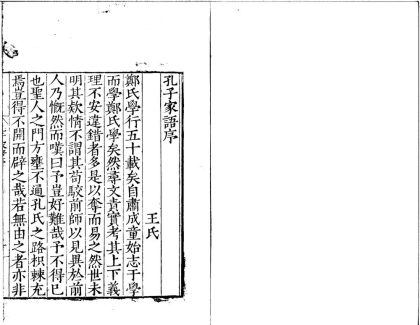 孔子家語序
王氏
鄭氏學行五十載矣自肅成童始志于學
而學鄭氏學矣然尋文責實考其上下義
理不安違錯者多是以奪而易之然世未
明其款情不謂其苟駮前師以見異於前
人乃慨然而嘆曰予豈好難哉予不得已
也聖人之門方壅不通孔氏之路枳棘充
焉豈得不開而辟之哉若無由之者亦非